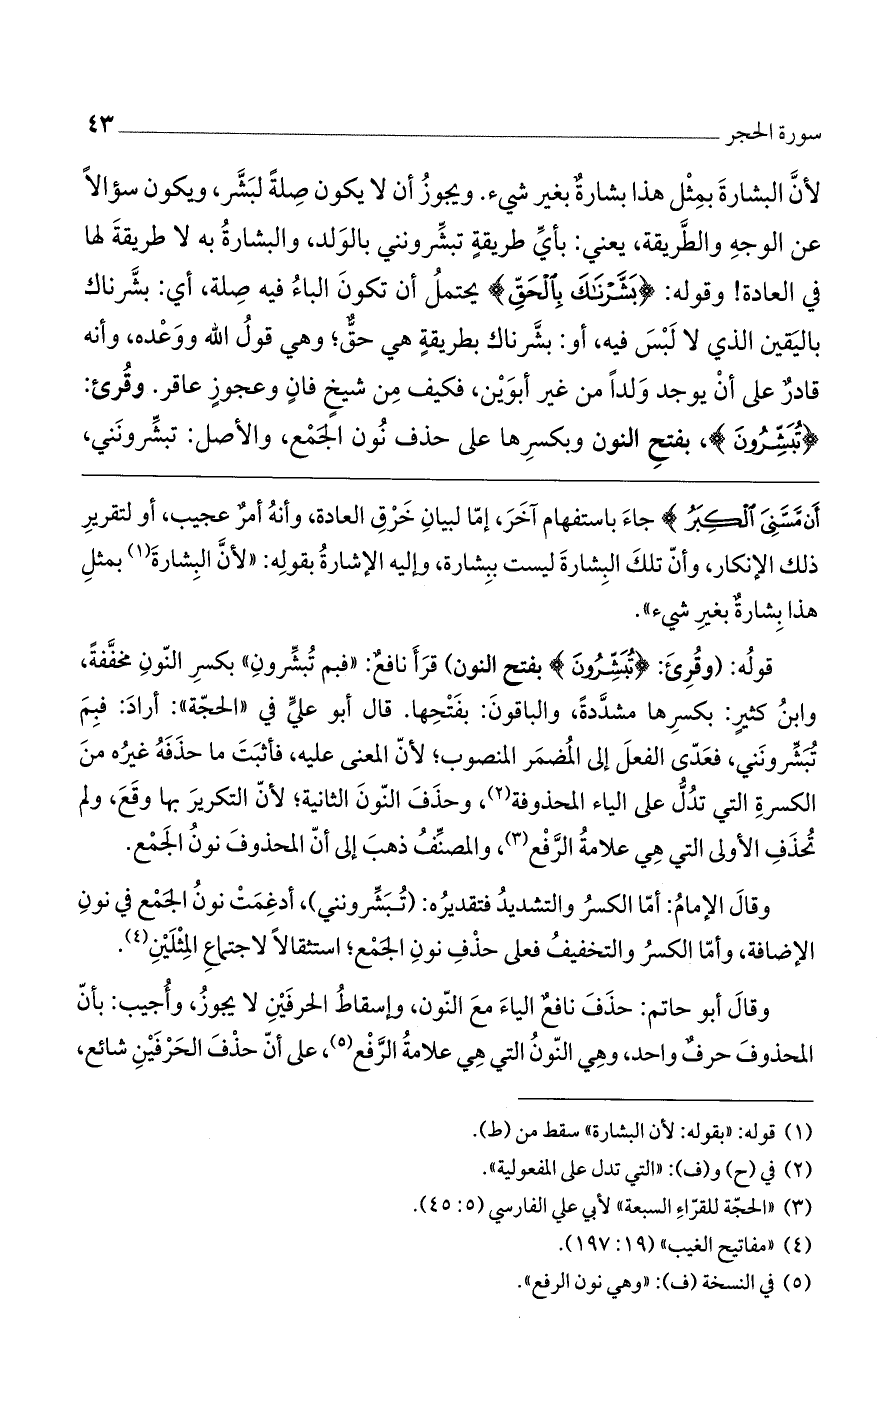 سورة الحجر ٤٣
لأنَّ البشارةَ بمِثْل هذا بشارةٌ بغير شيء. ويجوزُ أن لا يكون صِلةً لبَشَّر، ويكون سؤالاً
عن الوجهِ والطَّريقة، يعني: بأيِّ طريقةٍ تبشِّرونني بالوَلد، والبشارةُ به لا طريقةَ لها
في العادة! وقوله: ﴿بَشَّرْنَٰكَ بِٱلْحَقِّ﴾ يحتملُ أن تكونَ الباءُ فيه صِلة، أي: بشَّرناك
باليَقين الذي لا لَبْسَ فيه، أو: بشَّرناك بطريقةٍ هي حقٌّ؛ وهي قولُ الله ووَعْده، وأنه
قادرٌ على أنْ يوجد وَلداً من غير أبوَيْن، فكيف مِن شيخٍ فانٍ وعجوزٍ عاقر. وقُرئ:
﴿تُبَشِّرُونَ﴾، بفتحِ النون وبكسرِها على حذف نُون الجَمْع، والأصل: تبشِّرونَني،
أَن مَّسَّنِىَ ٱلْكِبَرُ﴾ جاءَ باستفهام آخَرَ، إمّا لبيانِ خَرْقِ العادة، وأنهُ أمرٌ عجيب، أو لتقريرِ
ذلك الإنكار، وأنّ تلكَ البِشارةَ ليست ببِشارة، وإليه الإشارةُ بقولِه: «لأنَّ البِشارةَ(١) بمثلِ
هذا بِشارةٌ بغيرِ شيء».
قولُه: (وقُرِئَ: ﴿تُبَشِّرُونَ﴾ بفتح النون) قرَأَ نافعٌ: «فبم تُبشِّرونِ» بكسرِ النّونِ مخفَّفةً،
وابنُ كثيرٍ: بكسرِها مشدَّدةً، والباقونَ: بفَتْحِها. قال أبو عليٍّ في «الحجّة»: أرادَ: فبِمَ
تُبَشِّرونَني، فعَدّى الفعلَ إلى المُضمَر المنصوب؛ لأنّ المعنى عليه، فأثبَتَ ما حذَفَهُ غيرُه منَ
الكسرةِ التي تدُلُّ على الياء المحذوفة(٢)، وحذَفَ النّونَ الثانية؛ لأنّ التكريرَ بها وقَعَ، ولم
تُحذَفِ الأولى التي هِي علامةُ الرَّفْع(٣)، والمصنِّفُ ذهبَ إلى أنّ المحذوفَ نونُ الجَمْع.
وقالَ الإمامُ: أمّا الكسرُ والتشديدُ فتقديرُه: (تُبَشِّرونني)، أدغِمَتْ نونُ الجَمْع في نونِ
الإضافة، وأمّا الكسرُ والتخفيفُ فعلى حذْفِ نونِ الجَمْع؛ استثقالاً لاجتماعِ المِثْلَيْنِ(٤).
وقالَ أبو حاتم: حذَفَ نافعٌ الياءَ معَ النّون، وإسقاطُ الحرفَيْنِ لا يجوزُ، وأُجيب: بأنّ
المحذوفَ حرفٌ واحد، وهِي النّونُ التي هِي علامةُ الرَّفْع(٥)، على أنّ حذْفَ الحَرْفَيْنِ شائع،
(١) قوله: «بقوله: لأن البشارة» سقط من (ط).
(٢) في (ح) و(ف): «التي تدل على المفعولية».
(٣) «الحجّة للقرّاءِ السبعة» لأبي علي الفارسي (٥: ٤٥).
(٤) «مفاتيح الغيب» (١٩: ١٩٧).
(٥) في النسخة (ف): «وهي نون الرفع».